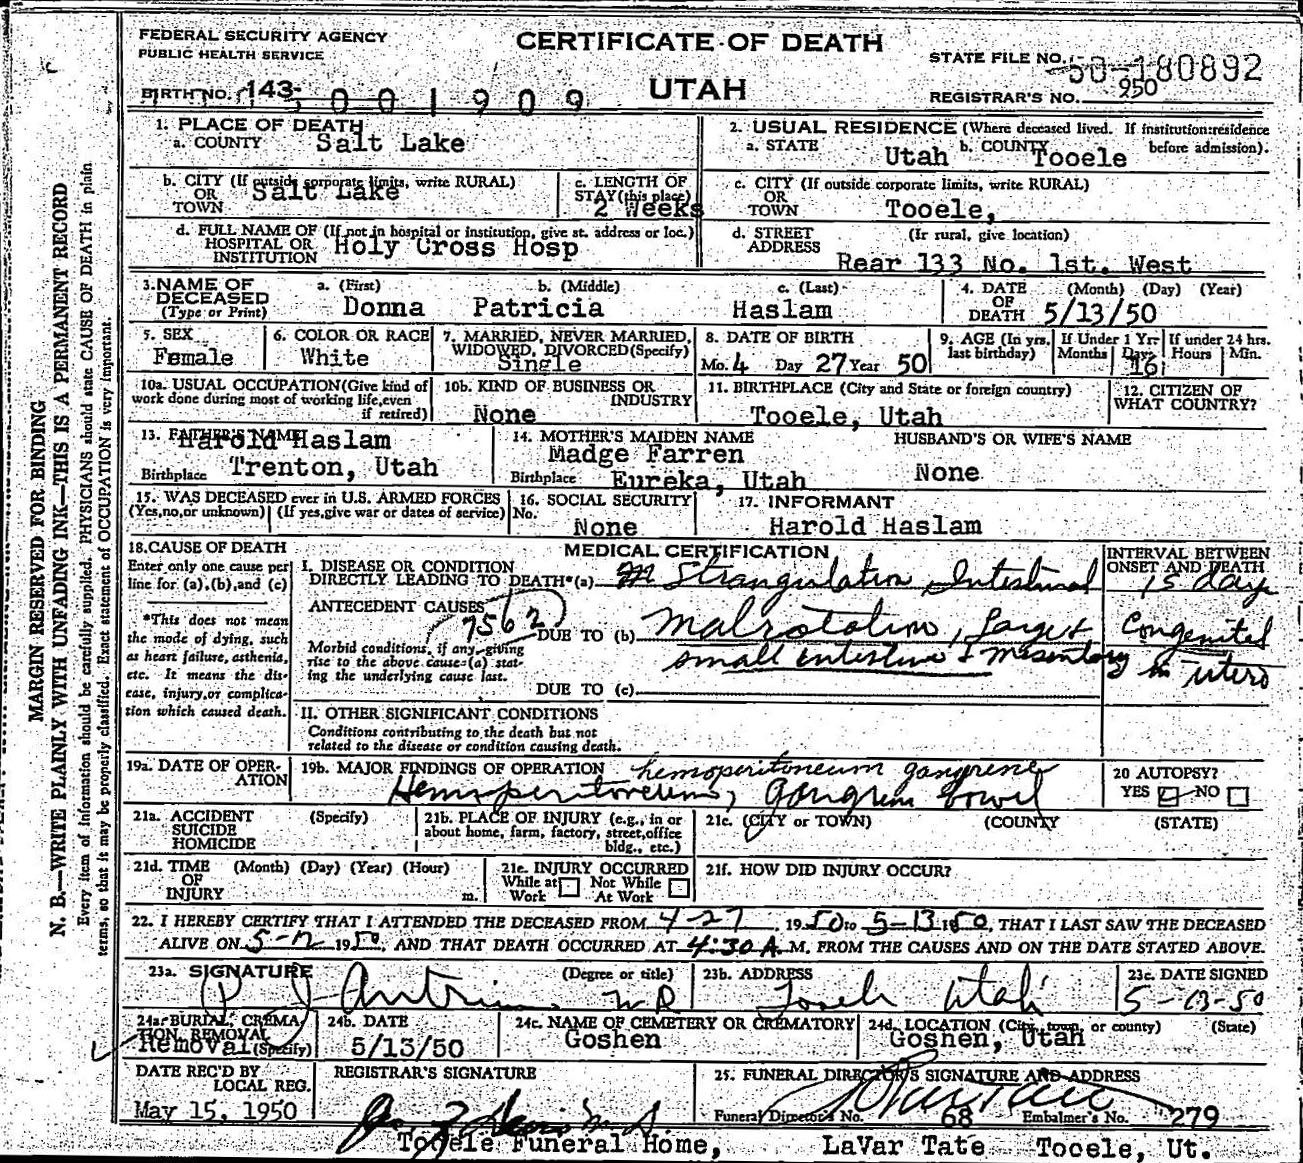 FEDERAL SECURITY AGENCY
PUBLIC HEALTH SERVICE
CERTIFICATE OF DEATH
UTAH
STATE FILE NO. 50-180892
REGISTRAR'S NO. 950
BIRTH NO. 143-5001909
MARGIN RESERVED FOR BINDING
N. B.—WRITE PLAINLY WITH UNFADING INK—THIS IS A PERMANENT RECORD
Every item of information should be carefully supplied. PHYSICIANS should state CAUSE OF DEATH in plain
terms, so that it may be properly classified. Exact statement of OCCUPATION is very important.
1. PLACE OF DEATH
a. COUNTY Salt Lake
2. USUAL RESIDENCE (Where deceased lived. If institution: residence
before admission).
a. STATE Utah b. COUNTY Tooele
b. CITY (If outside corporate limits, write RURAL)
OR
TOWN Salt Lake
c. LENGTH OF
STAY (this place)
2 Weeks
c. CITY (If outside corporate limits, write RURAL)
OR
TOWN Tooele,
d. FULL NAME OF (If not in hospital or institution, give st. address or loc.)
HOSPITAL OR
INSTITUTION Holy Cross Hosp
d. STREET (If rural, give location)
ADDRESS
Rear 133 No. 1st. West
3. NAME OF
DECEASED
(Type or Print)
a. (First) b. (Middle) c. (Last)
Donna Patricia Haslam
4. DATE (Month) (Day) (Year)
OF
DEATH 5/13/50
5. SEX
Female
6. COLOR OR RACE
White
7. MARRIED, NEVER MARRIED,
WIDOWED, DIVORCED (Specify)
Single
8. DATE OF BIRTH
Mo. 4 Day 27 Year 50
9. AGE (In yrs. last birthday)
If Under 1 Yr.
Months Days 16
If under 24 hrs.
Hours Min.
10a. USUAL OCCUPATION (Give kind of
work done during most of working life, even
if retired)
10b. KIND OF BUSINESS OR
INDUSTRY
None
11. BIRTHPLACE (City and State or foreign country)
Tooele, Utah
12. CITIZEN OF
WHAT COUNTRY?
13. FATHER'S NAME
Harold Haslam
Birthplace Trenton, Utah
14. MOTHER'S MAIDEN NAME
Madge Farren
Birthplace Eureka, Utah
HUSBAND'S OR WIFE'S NAME
None
15. WAS DECEASED ever in U.S. ARMED FORCES
(Yes, no, or unknown) (If yes, give war or dates of service)
16. SOCIAL SECURITY
No.
None
17. INFORMANT
Harold Haslam
18. CAUSE OF DEATH
Enter only one cause per
line for (a), (b), and (c)
*This does not mean
the mode of dying, such
as heart failure, asthenia,
etc. It means the dis-
ease, injury, or complica-
tion which caused death.
MEDICAL CERTIFICATION
I. DISEASE OR CONDITION
DIRECTLY LEADING TO DEATH* (a) Strangulation, Intestinal
ANTECEDENT CAUSES
7562
Morbid conditions, if any, giving
rise to the above cause (a) stat-
ing the underlying cause last.
DUE TO (b) Malrotation, Large &
small intestine & mesentery
DUE TO (c)
INTERVAL BETWEEN
ONSET AND DEATH
15 days
Congenital
in utero
II. OTHER SIGNIFICANT CONDITIONS
Conditions contributing to the death but not
related to the disease or condition causing death.
19a. DATE OF OPER-
ATION
19b. MAJOR FINDINGS OF OPERATION hemoperitoneum gangrene
Hemoperitoneum, Gangrene bowel
20 AUTOPSY?
YES NO
21a. ACCIDENT (Specify)
SUICIDE
HOMICIDE
21b. PLACE OF INJURY (e.g., in or
about home, farm, factory, street, office
bldg., etc.)
21c. (CITY or TOWN) (COUNTY) (STATE)
21d. TIME (Month) (Day) (Year) (Hour)
OF
INJURY m.
21e. INJURY OCCURRED
While at Work Not While At Work
21f. HOW DID INJURY OCCUR?
22. I HEREBY CERTIFY THAT I ATTENDED THE DECEASED FROM 4-27, 1950 to 5-13 1950, THAT I LAST SAW THE DECEASED
ALIVE ON 5-12 1950, AND THAT DEATH OCCURRED AT 4:30 A. M. FROM THE CAUSES AND ON THE DATE STATED ABOVE.
23a. SIGNATURE (Degree or title)
23b. ADDRESS
Tooele Utah
23c. DATE SIGNED
5-13-50
24a. BURIAL, CREMA-
TION, REMOVAL
Removal (Specify)
24b. DATE
5/13/50
24c. NAME OF CEMETERY OR CREMATORY
Goshen
24d. LOCATION (City, town, or county) (State)
Goshen, Utah
DATE REC'D BY
LOCAL REG.
May 15, 1950
REGISTRAR'S SIGNATURE
25. FUNERAL DIRECTOR'S SIGNATURE AND ADDRESS
Funeral Director's No. 68 Embalmer's No. 279
Tooele Funeral Home, LaVar Tate Tooele, Ut.